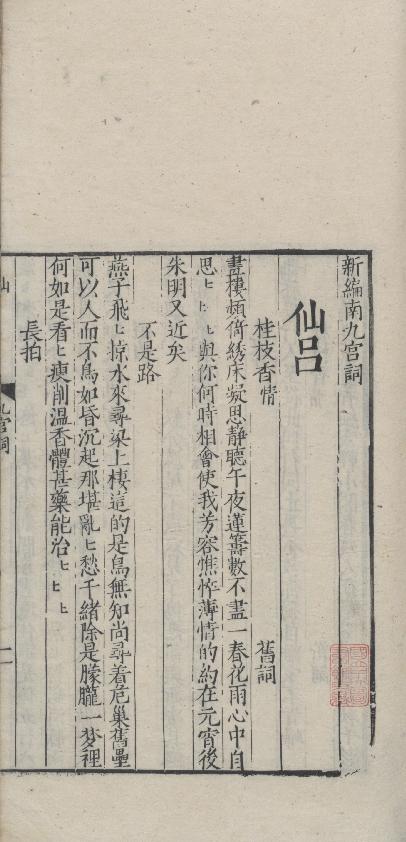 新編南九宮詞
仙呂
桂枝香情　舊詞
畫樓頻倚綉床凝思靜聽午夜蓮籌數不盡一春花雨心中自
思〻〻〻與你何時相會使我芳容憔悴薄情的約在元宵後
朱明又近矣
不是路
燕子飛〻掠水來尋梁上棲這的是鳥無知尚尋着危巢舊壘
可以人而不鳥如昏沉起那堪亂〻愁千緒除是朦朧一夢裡
何如是看〻瘦削溫香體甚藥能治〻〻〻
長拍
仙
九宮詞
一